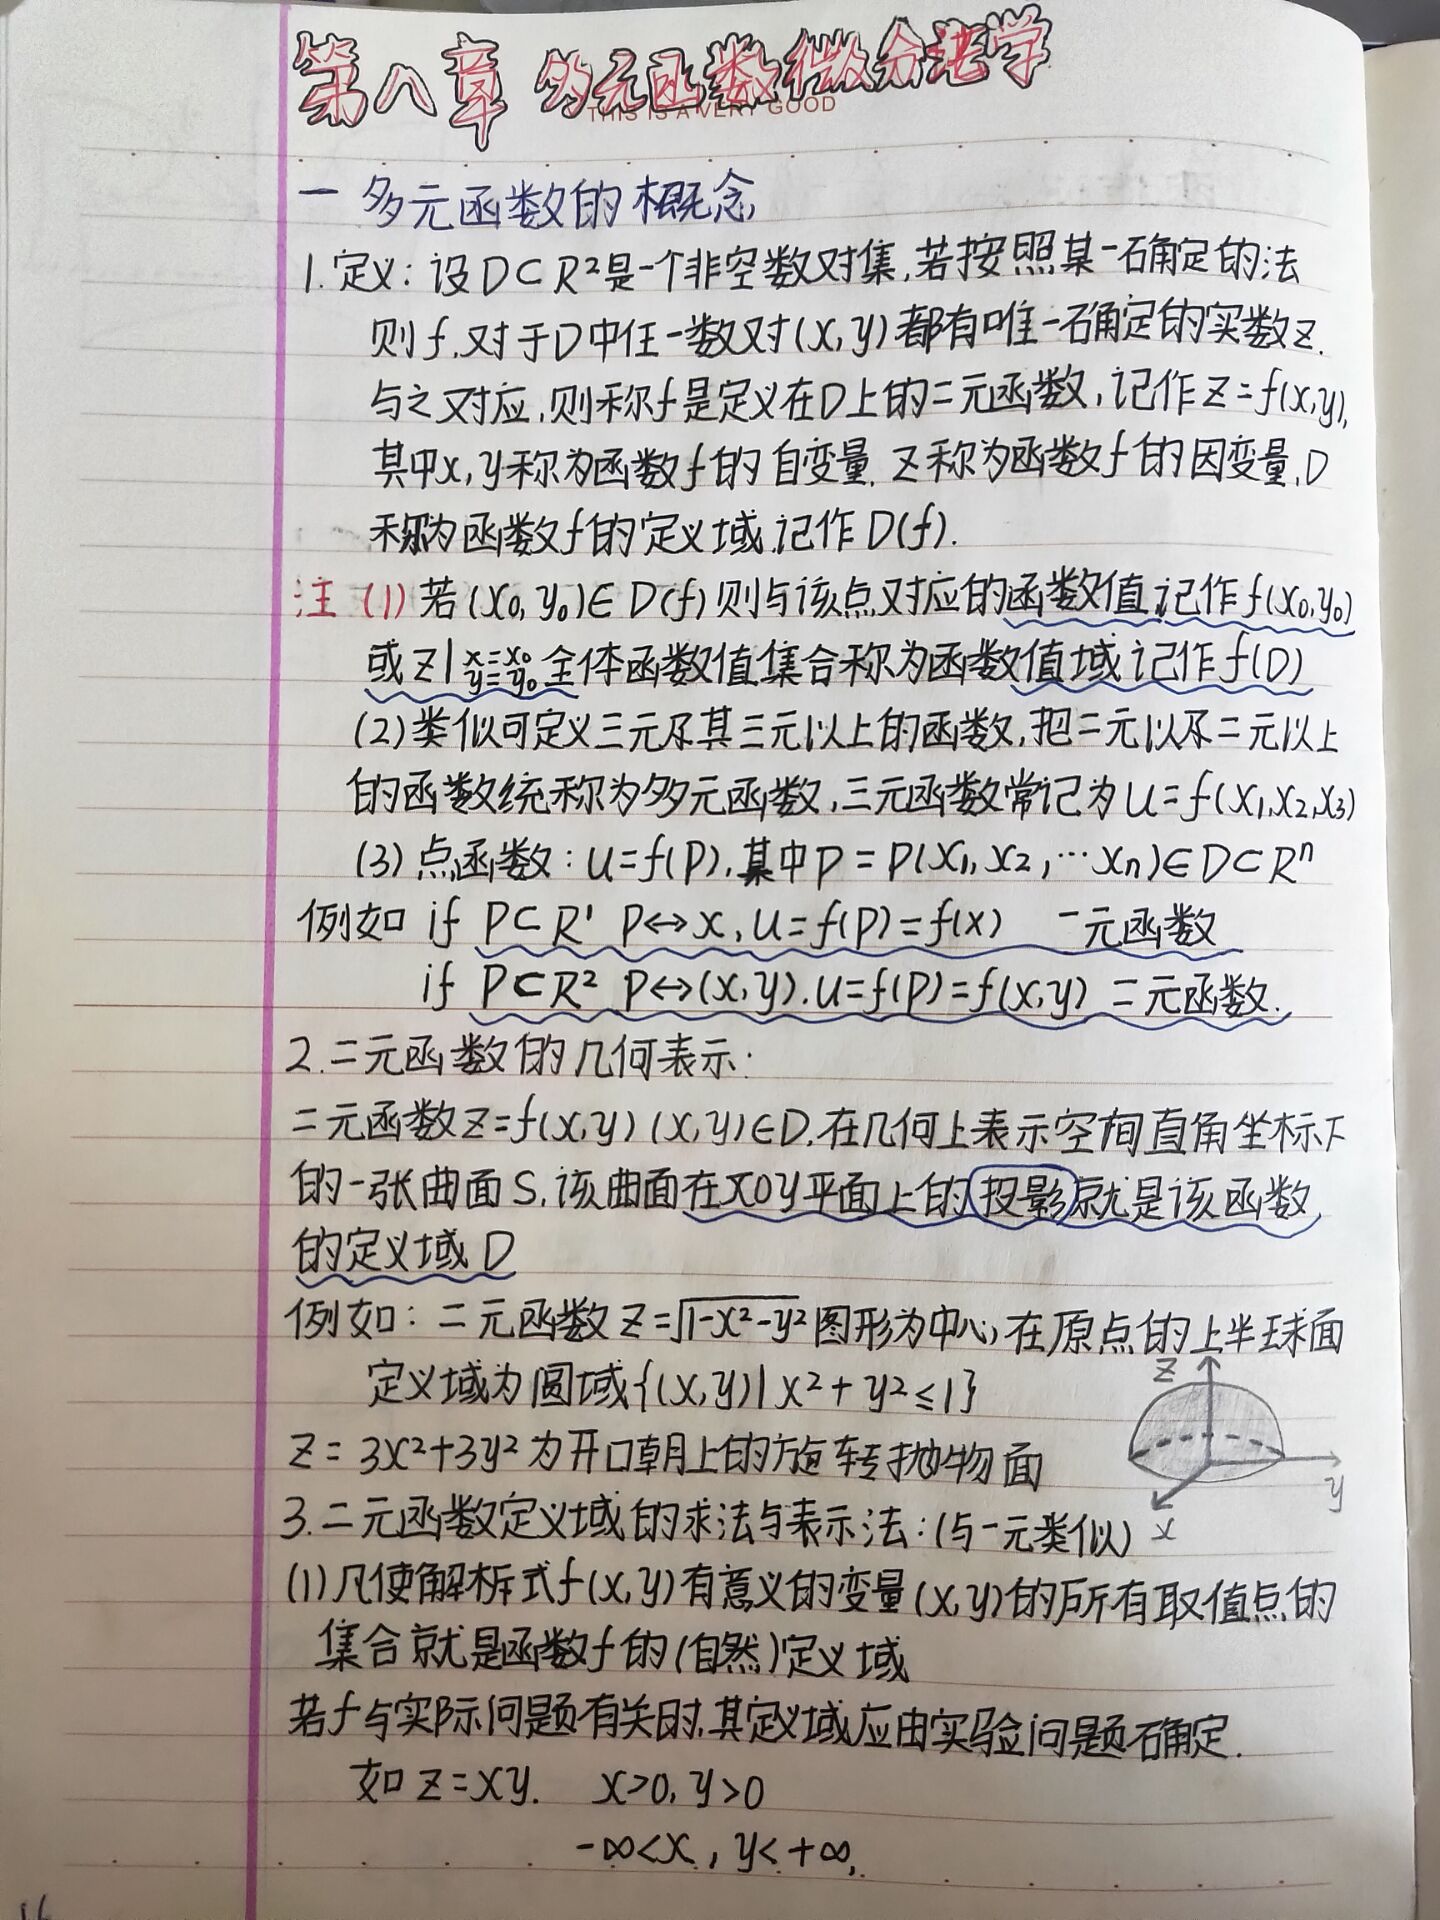 第八章 多元函数微分法学
THIS IS A VERY GOOD
一 多元函数的概念
1.定义：设D⊂R²是一个非空数对集，若按照某一确定的法
则f，对于D中任一数对(x,y)都有唯一确定的实数z.
与之对应，则称f是定义在D上的二元函数，记作z=f(x,y),
其中x,y称为函数f的自变量，z称为函数f的因变量，D
称为函数f的定义域，记作D(f).
注 (1)若(x₀,y₀)∈D(f)则与该点对应的函数值记作f(x₀,y₀)
或z|x=x₀ y=y₀ 全体函数值集合称为函数值域记作f(D)
(2)类似可定义三元及其三元以上的函数，把二元以及二元以上
的函数统称为多元函数，三元函数常记为u=f(x₁,x₂,x₃)
(3)点函数：u=f(P)，其中P=P(x₁,x₂,…xₙ)∈D⊂Rⁿ
例如 if P⊂R¹ P↔x,u=f(P)=f(x) 一元函数
if P⊂R² P↔(x,y).u=f(P)=f(x,y) 二元函数.
2.二元函数的几何表示：
二元函数z=f(x,y) (x,y)∈D，在几何上表示空间直角坐标下
的一张曲面S，该曲面在xOy平面上的投影就是该函数
的定义域D
例如：二元函数z=√1-x²-y² 图形为中心在原点的上半球面
定义域为圆域{(x,y)|x²+y²≤1}
z
z=3x²+3y²为开口朝上的旋转抛物面
y
x
3.二元函数定义域的求法与表示法：(与一元类似)
(1)凡使解析式f(x,y)有意义的变量(x,y)的所有取值点的
集合就是函数f的(自然)定义域
若f与实际问题有关时，其定义域应由实验问题确定.
如z=xy. x>0,y>0
-∞<x,y<+∞,